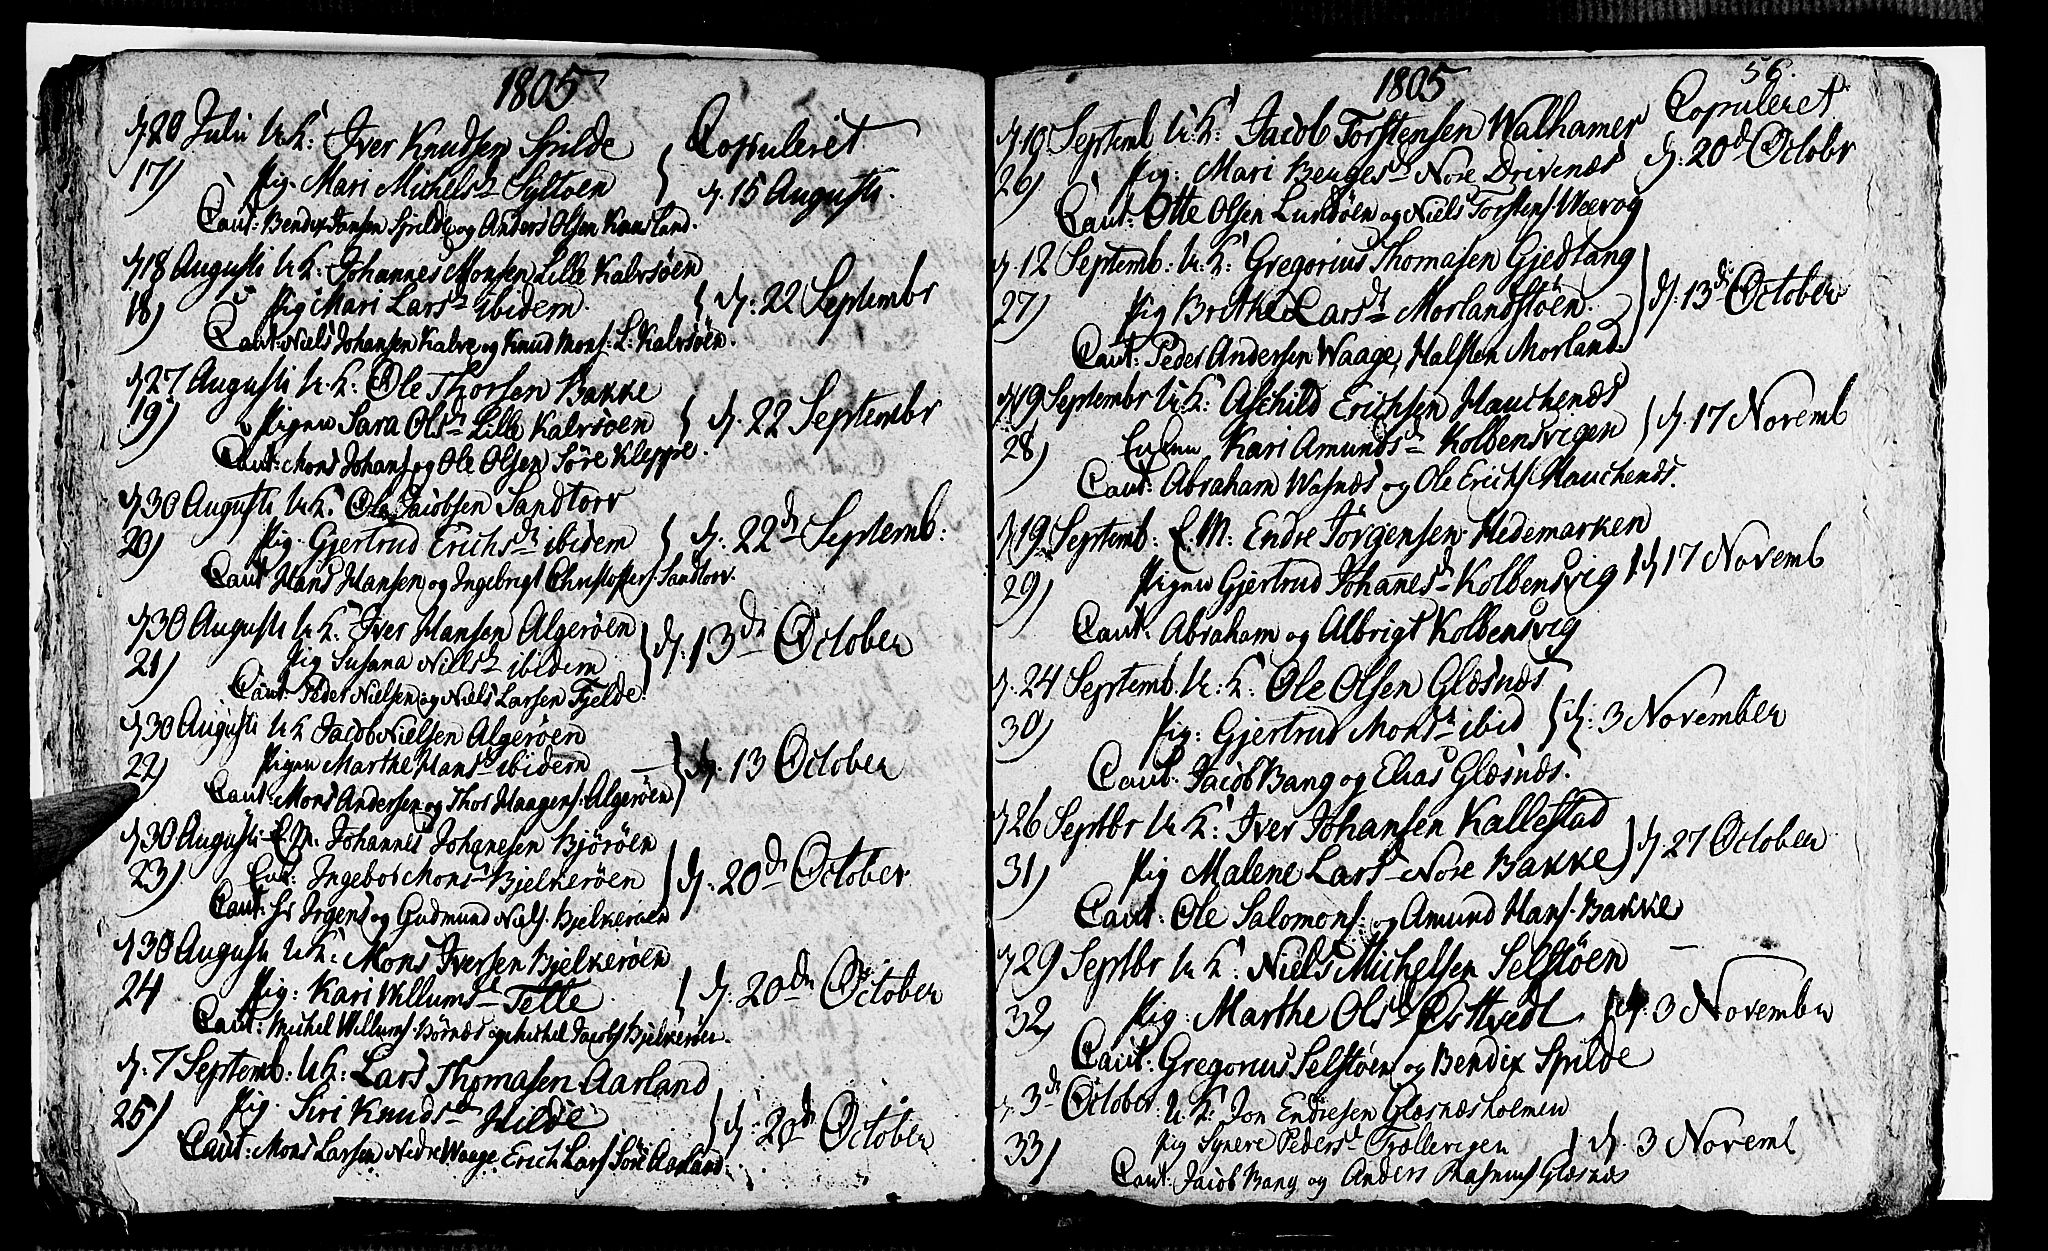 1805
d 20 Julii U.K: Iver Knudsen Spilde Copuleret
17) Pig. Mari Michelsd Syltøen } d. 15 Augusti.
Caut: Bendix Jansen Spilde og Anders Olsen Knusland.
d 18 Augusti U.K: Johannes Monsen Lille Kalvsøen
18) Pig Mari Larsd ibidem. } d: 22 Septembr
Caut: Niels Johansen Kalve og Knud Mons: L: Kalvsøen.
d 27 Augusti U.K: Ole Thorsen Bakke
19) Pigen Sara Olsd Lille Kalvsøen } d. 22 Septembr
Caut: Mons Johans og Ole Olsen Søre Kleppe.
d 30 Augusti U.K: Ole Jacobsen Sandtorv
20) Pig. Gjertrud Erichsd ibidem } d. 22de Septemb:
Caut Hans Hansen og Ingebrigt Christoffers. Sandtorv.
d 30 Augusti U.K: Iver Hansen Algerøen
21) Pig Susana Nillsd ibidem } d: 13de October
Caut Peder Nielsen og Niels Larsen Fjelde.
d 30 Augusti U.K Jacob Nielsen Algerøen
22) Pigen Marthe Hansd ibidem } d. 13 October
Caut: Mons Andersen og Thos Haagens: Algerøen
d 30 Augusti E.M. Johannes Johanesen Bjørøen
23) Enk: Ingebor Monsd Bjelkerøen } d. 20de October
Caut: Hr Irgens og Gudmund Niels. Bjelkerøen
d 30 Augusti U.K: Mons Iversen Bjelkerøen
24 Pig: Kari Willumsd Telle } d. 20de October
Caut: Michel Willums. Børnæs og Michel Jacobs Bjelkerøen.
d. 7 Septemb: U.K: Lars Thomasen Aarland
25) Pig. Siri Knudsd Hilde } d: 20de October
Caut: Mons Larsen Nedre Waage. Erich Lars Søre Aarland.
1805 56.
d. 10 Septemb U.K: Jacob Torstensen Walhamer Copuleret
26) Pig: Mari Bengesd Nore Drivenæs d. 20de Octobr
Caut: Otte Olsen Lundøen og Niels Torstens. Weevog
d. 12 Septemb: U.K: Gregorius Thomasen Gjedtang
27) Pig Brithe Larsd Morlandstøen. } d: 13de October
Caut: Peder Andersen Waage, Halsten Morland.
d 19 Septembr U.K: Aschild Erichsen Hauchenæs
28) Enken Kari Amundsd Kolbensvigen } d. 17 Novemb
Caut: Abraham Wasnæs og Ole Erichs Hauchenæs.
d 19 Septemb: E.M: Endre Jørgensen Hedemarken
29) Pigen Gjertrud Johanesd Kolbensvig } d 17 Novemb
Caut: Abraham og Albrigt Kolbensvig
d. 24 Septemb. U.K: Ole Olsen Glæsnæs
30) Pig: Gjertrud Monsd ibid } d. 3 November
Caut: Jacob Bang og Elias Glæsnæs.
d 26 Septbr U.K: Iver Johansen Kallestad
31) Pig Malene Larsd Nore Bakke } d. 27 October
Caut: Ole Salomons. og Amund Hans. Bakke
d 29 Septbr U.K: Niels Michelsen Selstøen
32) Pig: Marthe Olsd Østtvedt } d. 3 November
Caut: Gregorius Selstøen og Bendix Spilde
d. 3de October: U.K: Jon Endresen Glæsnæsholmen
33) Pig Synere Pedersd Trællevigen } d. 3 Novemb
Caut: Jacob Bang og Anders Rasmus Glæsnæs